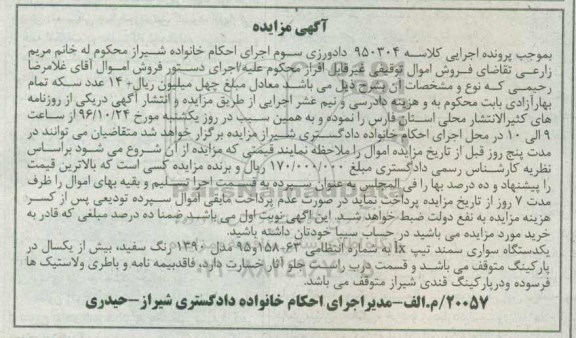 آگهی مزایده
بموجب پرونده اجرایی کلاسه ۹۵۰۳۰۴ دادورزی سوم اجرای احکام خانواده شیراز محکوم له خانم مریم
زارعی تقاضای فروش اموال توقیفی غیرقابل افراز محکوم علیه/اجرای دستور فروش اموال آقای غلامرضا
رحیمی که نوع و مشخصات آن بشرح ذیل می باشد معادل مبلغ چهل میلیون ریال+ ۱۴ عدد سکه تمام
بهارآزادی بابت محکوم به و هزینه دادرسی و نیم عشر اجرایی از طریق مزایده و انتشار آگهی دریکی از روزنامه
های کثیرالانتشار محلی استان فارس را نموده و به همین سبب در روز یکشنبه مورخ ۹۶/۱۰/۲۴ از ساعت
۹ الی ۱۰ در محل اجرای احکام خانواده دادگستری شیراز مزایده برگزار خواهد شد متقاضیان می توانند در
مدت پنج روز قبل از تاریخ مزایده اموال را ملاحظه نمایند قیمتی که مزایده از آن شروع می شود براساس
نظریه کارشناس رسمی دادگستری مبلغ ۱۷۰/۰۰۰/۰۰۰ ریال و برنده مزایده کسی است که بالاترین قیمت
را پیشنهاد و ده درصد بها را فی المجلس به عنوان سپرده به قسمت اجرا تسلیم و بقیه بهای اموال را ظرف
مدت ۷ روز از تاریخ مزایده پرداخت نماید در صورت عدم پرداخت مابقی اموال سپرده تودیعی پس از کسر
هزینه مزایده به نفع دولت ضبط خواهد شد. این آگهی نوبت اول می باشد ضمنا ده درصد مبلغی که قادر به
خرید مورد مزایده می باشید در حساب سیبا خودتان داشته باشید.
یکدستگاه سواری سمند تیپ lx به شماره انتظامی ۶۳-۱۵۸و۹۵ مدل ۱۳۹۰ رنگ سفید، بیش از یکسال در
پارکینگ متوقف می باشد و قسمت درب راست جلو آثار خسارت دارد، فاقدبیمه نامه و باطری ولاستیک ها
فرسوده ودرپارکینگ قندی شیراز متوقف می باشد.
۲۰۰۵۷/م.الف-مدیراجرای احکام خانواده دادگستری شیراز-حیدری